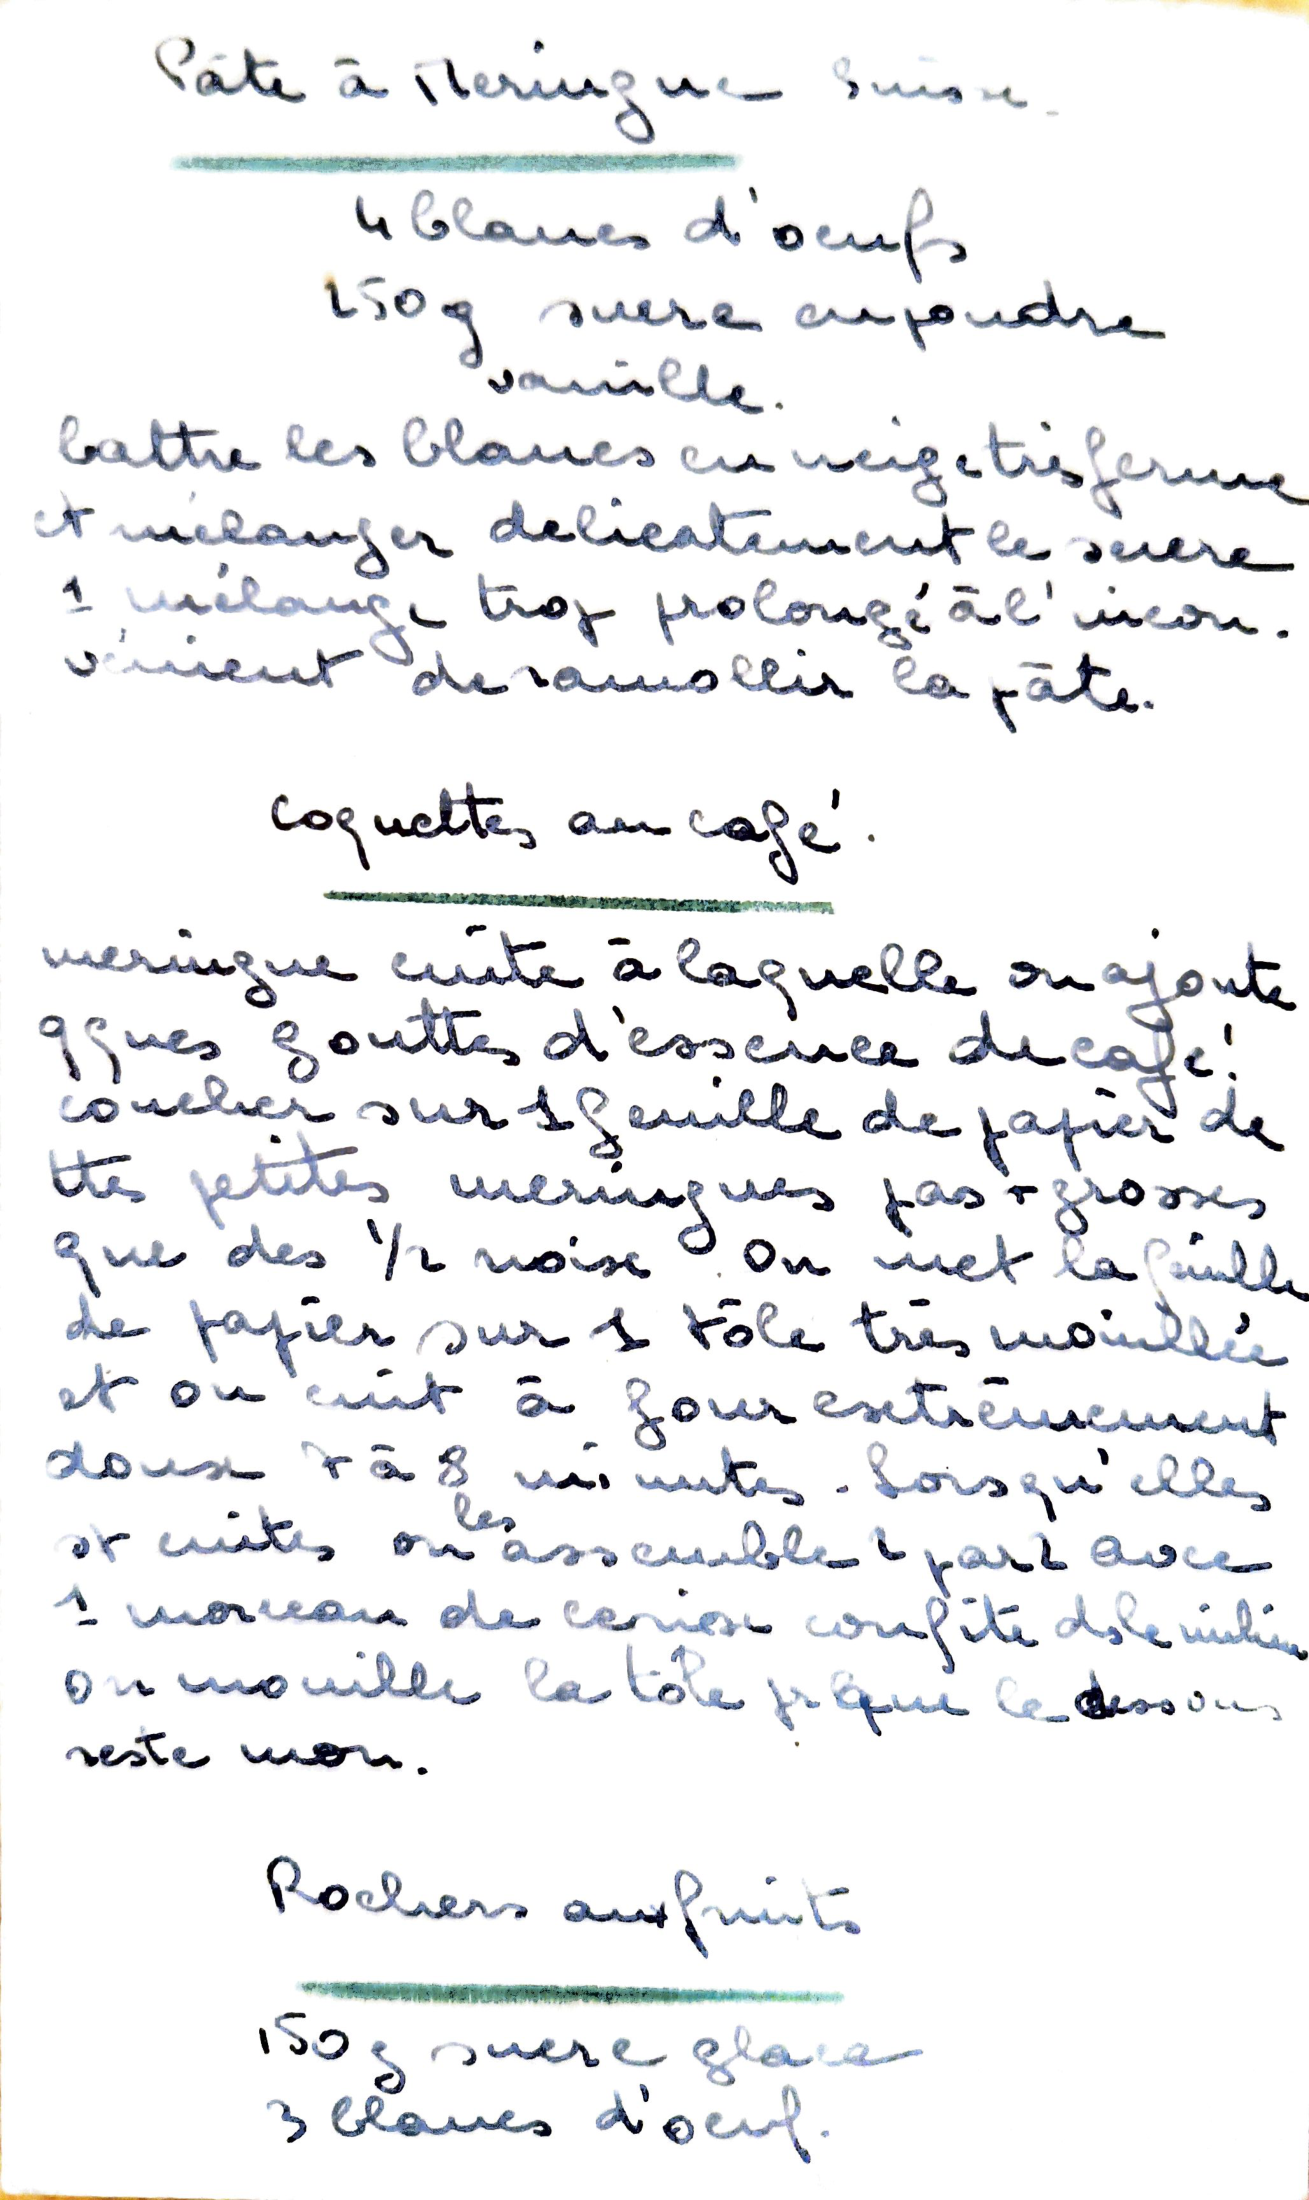 Pâte à Meringue Suisse.
4 blancs d'oeufs
250g sucre en poudre
vanille.
battre les blancs en neige très ferme
et mélanger delicatement le sucre
1 mélange trop prolongé à l'incon-
vénient de ramollir la pâte.
Coquettes au café.
meringue cuite à laquelle on ajoute
qques gouttes d'essence de café.
coucher sur 1 feuille de papier de
ttes petites meringues pas + grosses
que des 1/2 noix. On met la feuille
de papier sur 1 tôle très mouillée
et on cuit à four extrêmement
doux 7 à 8 minutes. Lorsqu'elles
st cuites on les assemble 2 par 2 avec
1 morceau de cerise confite ds le milieu
On mouille la tôle pr que le dessous
reste mou.
Rochers aux fruits
150g sucre glace
3 blancs d'oeuf.